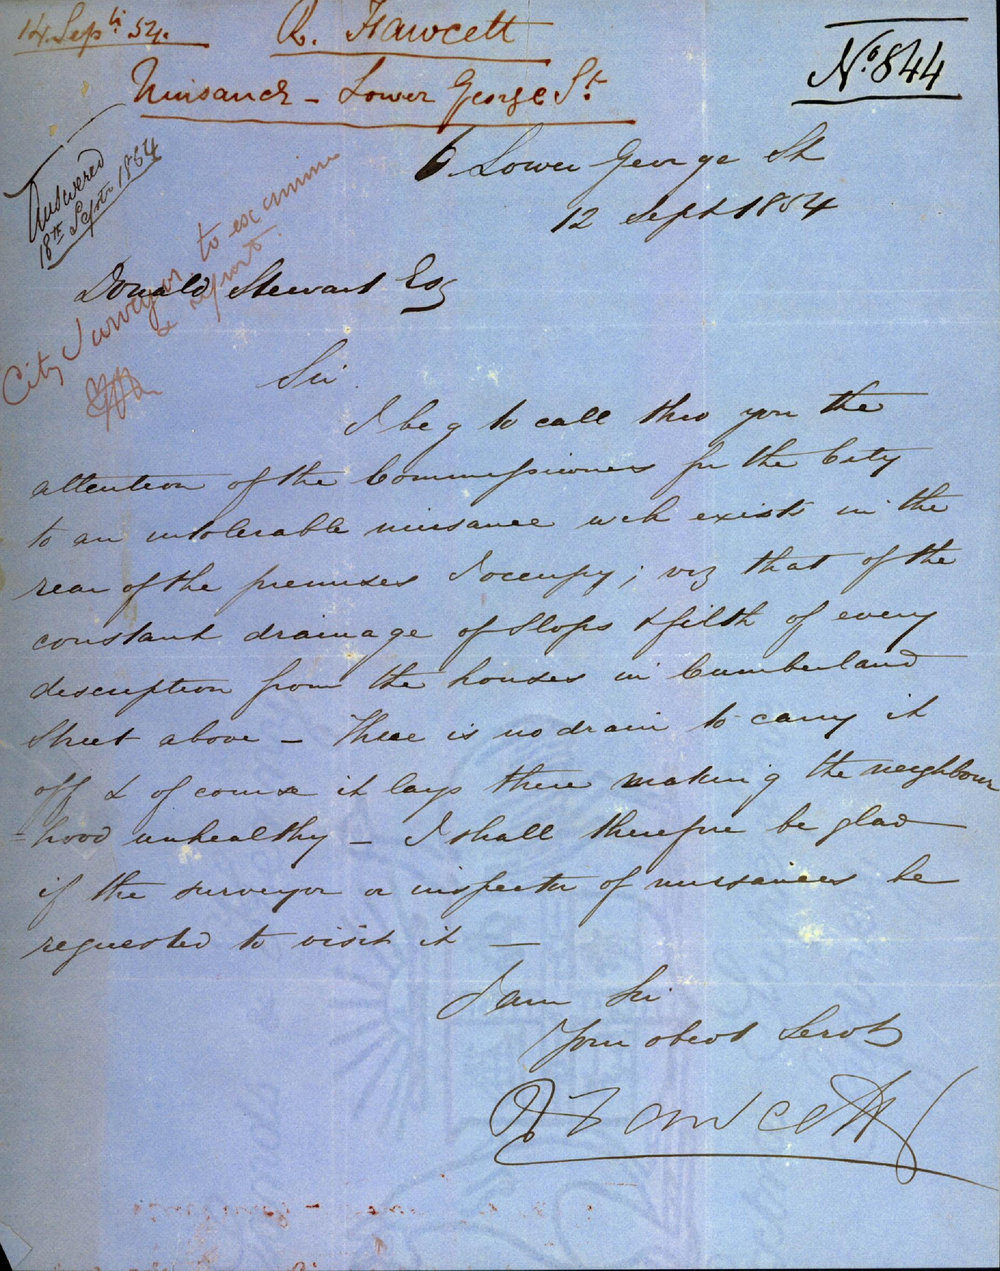 14. Septr 54.
R. Fawcett
No. 844
Nuisance - Lower George St.
Answered
18th Septr 1854
City Surveyor to examine
& report.
6 Lower George St
12 Sept 1854
Donald Stewart Esq
Sir
I beg to call thro you the
attention of the Commissioners for the City
to an intolerable nuisance wch exists in the
rear of the premises I occupy; viz that of the
constant drainage of Slops & filth of every
description from the houses in Cumberland
Street above - There is no drain to carry it
off & of course it lays there making the neighbour
-hood unhealthy - I shall therefore be glad
if the surveyor or inspector of nuisances be
requested to visit it -
I am Sir
Your obedt Servt
R Fawcett